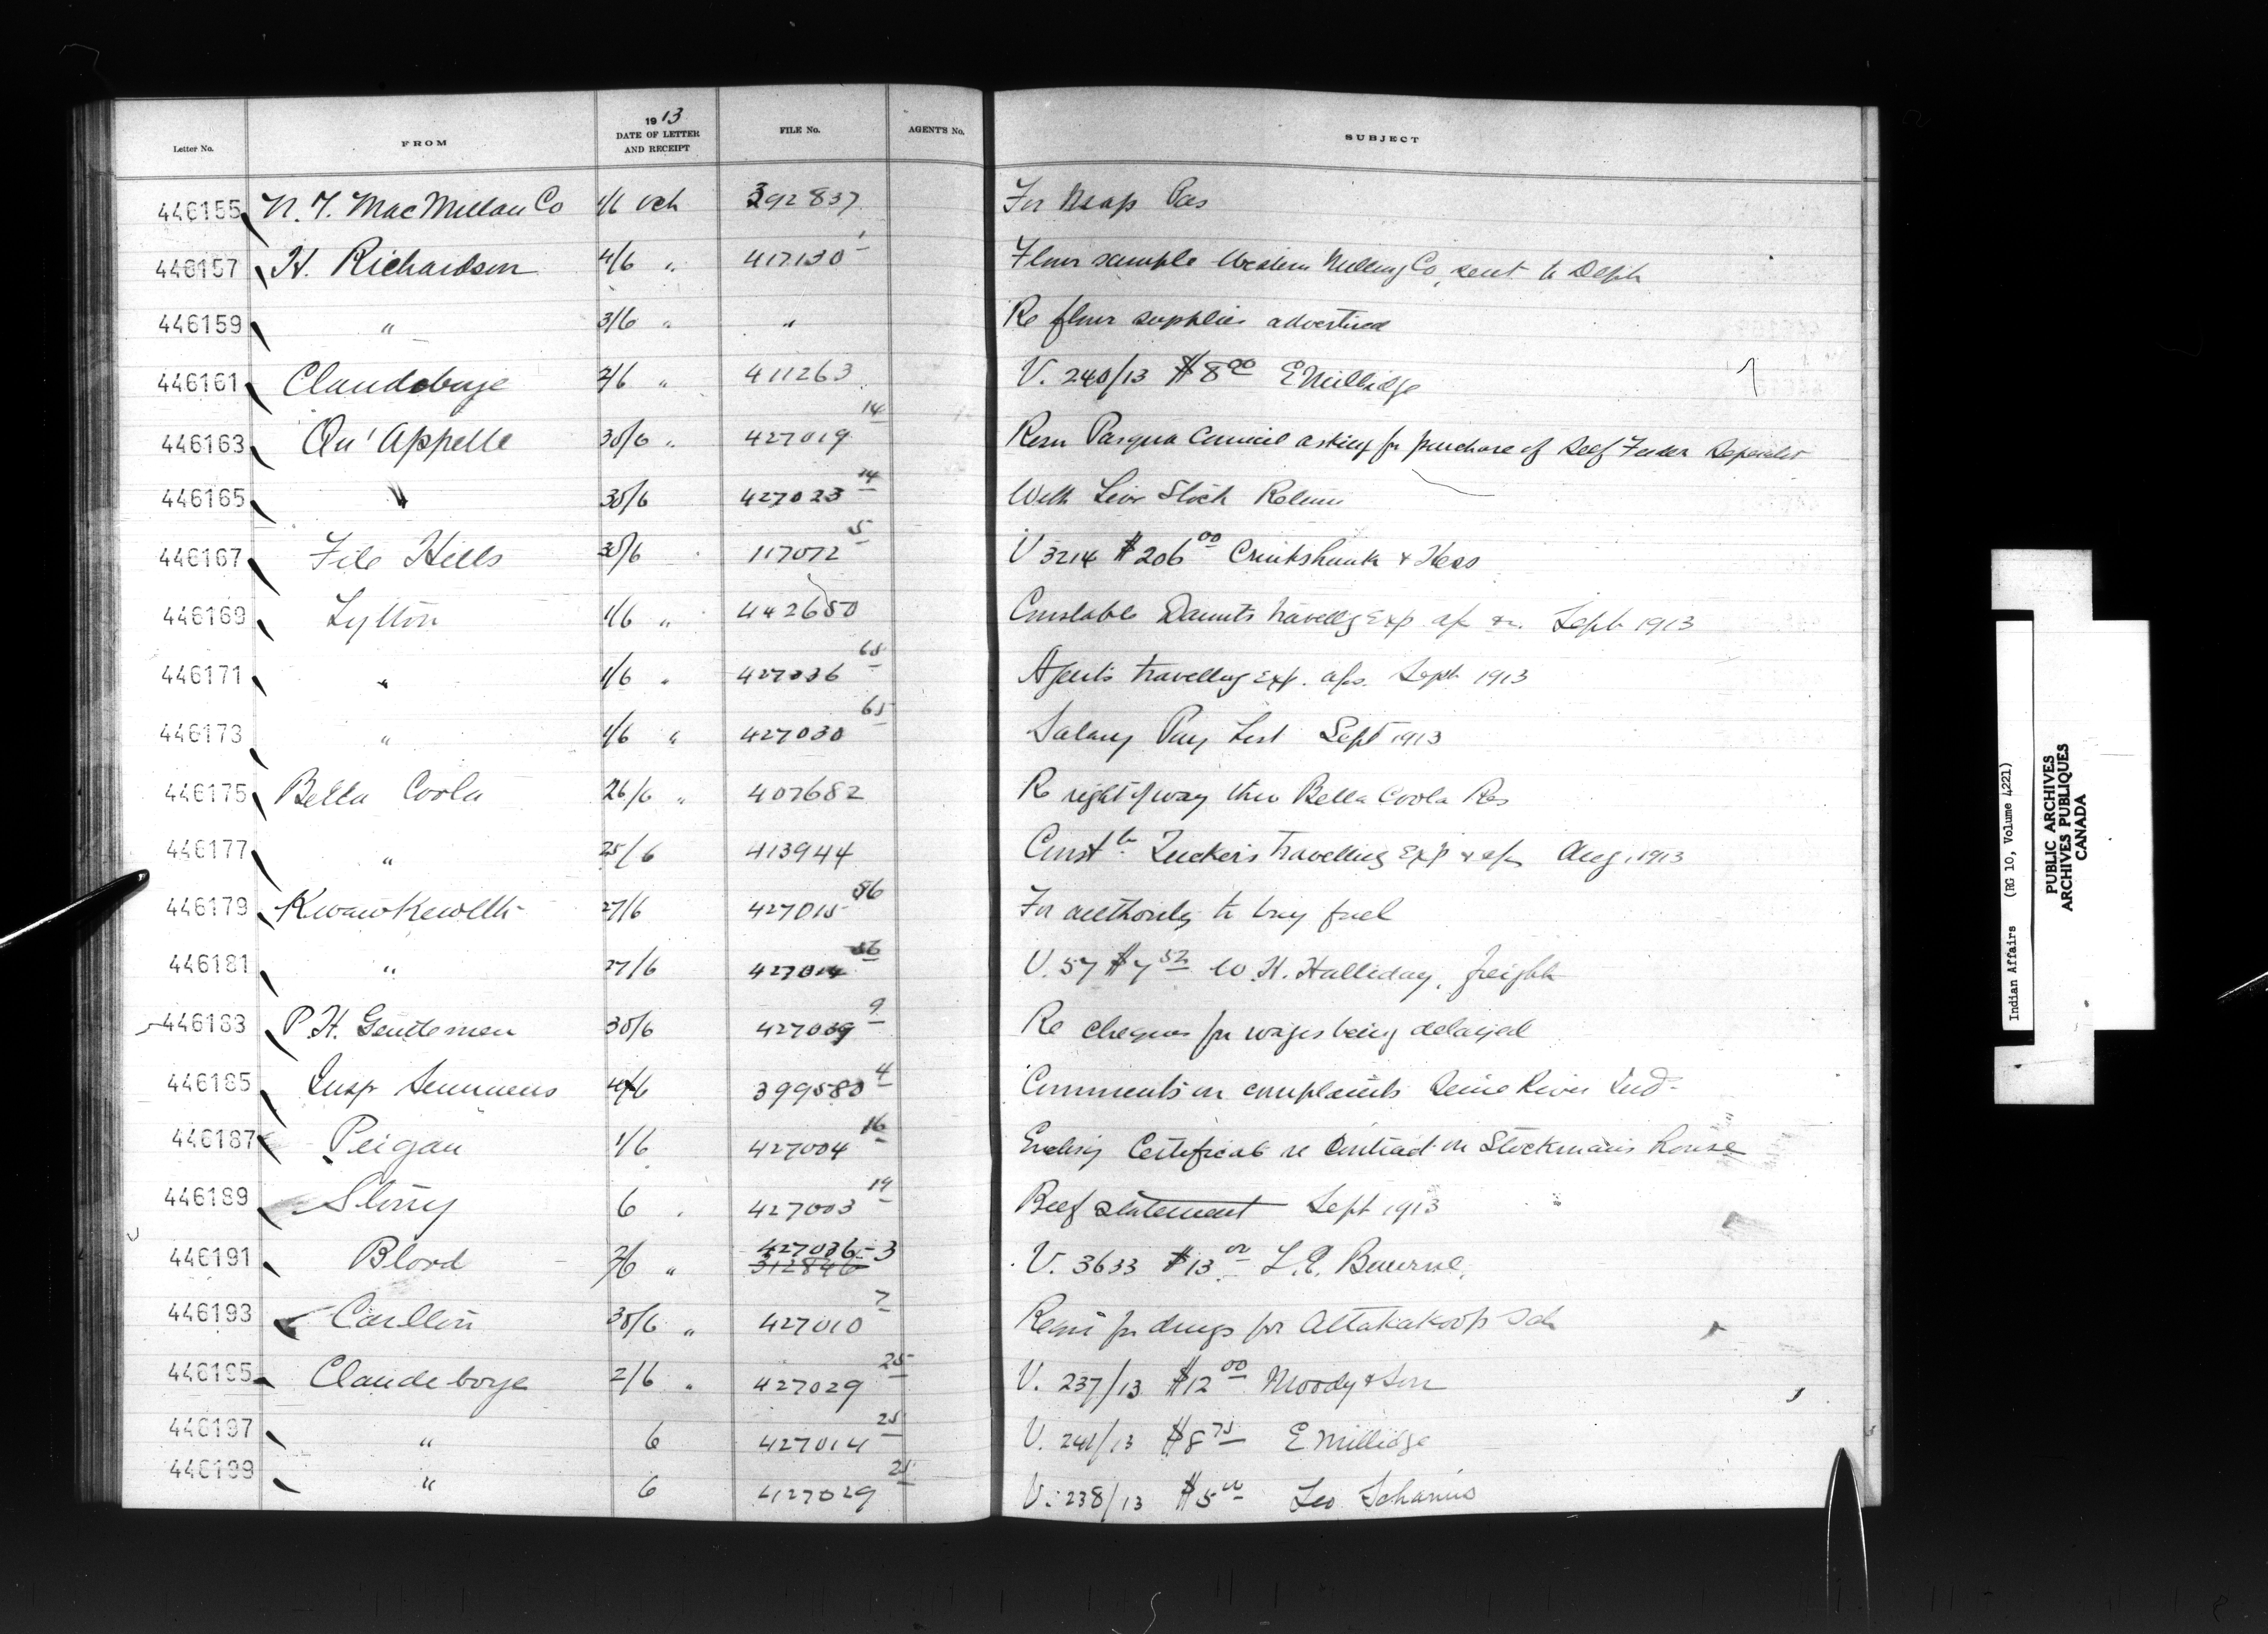 Letter No. FROM 1913 DATE OF LETTER AND RECEIPT FILE No. AGENT'S No. SUBJECT
446155 N. T. MacMillan Co 1/6 Oct 392837 For Map Pas
446157 H. Richardson 4/6 " 417130 1 Flour sample Western Milling Co, sent to Dept
446159 " 3/6 " " Re flour supplies advertised
446161 Clandeboye 2/6 " 411263 V. 240/13 $8 00 E Millidge
446163 Qu'Appelle 30/6 " 427019 14 Resn Pasqua Council asking for purchase of Self Feeder Separator
446165 " 30/6 427023 14 With Live Stock Return
446167 File Hills 30/6 117072 5 V 3214 $206 00 Cruikshank & Hess
446169 Lytton 1/6 " 442650 Constable Daunts travellg Exp Sept 1913
446171 " 1/6 " 427036 65 Agents travelling Exp. Sept 1913
446173 " 1/6 " 427030 65 Salary Pay List Sept 1913
446175 Bella Coola 26/6 " 407682 Re right of way thro Bella Coola Res
446177 " 25/6 413944 Constle Tuckers travelling Exp Aug 1913
446179 Kwawkewlth 27/6 427015 56 For authority to buy fuel
446181 " 27/6 427014 56 V. 57 $7 52 W. H. Halliday, freight
446183 P. H. Gentlemen 30/6 427039 9 Re cheques for wages being delayed
446185 Insp Semmens 4/6 399580 4 Comments on complaints Seine River Ind
446187 Peigan 1/6 427004 16 Enclosg Certificate re Contract on Stockman's house
446189 Stony 6 427003 19 Beef statement Sept 1913
446191 Blood 2/6 " 427036-3 312846 V. 3633 $13 00 L. E. Bourne
446193 Carlton 30/6 " 427010 7 Reqn for drugs for Attakakoop Sch
446195 Clandeboye 2/6 " 427029 25 V. 237/13 $12 00 Moody & Son
446197 " 6 427014 25 V. 241/13 $8 75 E Millidge
446199 " 6 427029 25 V. 238/13 $5 00 Leo Scharius
Indian Affairs (RG 10, Volume 4221)
PUBLIC ARCHIVES
ARCHIVES PUBLIQUES
CANADA